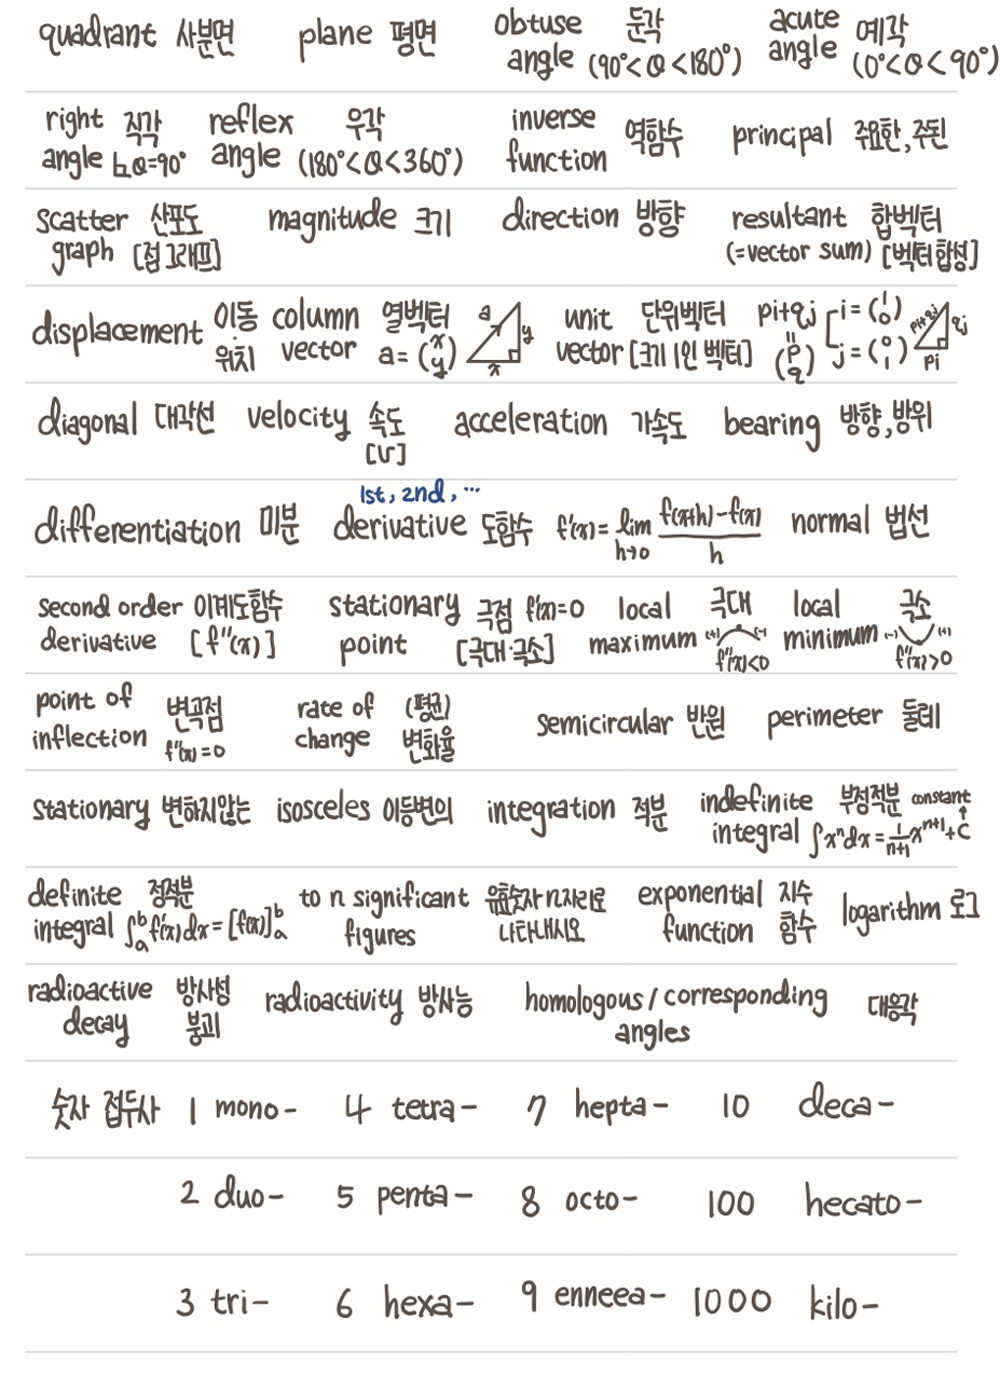 quadrant 사분면 plane 평면 obtuse angle 둔각 (90°<θ<180°) acute angle 예각 (0°<θ<90°)
right angle 직각 θ=90° reflex angle 우각 (180°<θ<360°) inverse function 역함수 principal 주요한, 주된
scatter graph 산포도 [점그래프] magnitude 크기 direction 방향 resultant (=vector sum) 합벡터 [벡터합성]
displacement 이동 위치 column vector 열벡터 a=(x y) a x y unit vector 단위벡터 [크기 1인 벡터] pi+qj = (p q) i=(1 0) j=(0 1) pi+qj qj pi
diagonal 대각선 velocity 속도 [v] acceleration 가속도 bearing 방향, 방위
1st, 2nd, ...
differentiation 미분 derivative 도함수 f'(x)=lim h→0 f(x+h)-f(x) / h normal 법선
second order derivative 이계도함수 [f''(x)] stationary point 극점 f'(x)=0 [극대·극소] local maximum 극대 (+) (-) f''(x)<0 local minimum 극소 (-) (+) f''(x)>0
point of inflection 변곡점 f''(x)=0 rate of change (평균) 변화율 semicircular 반원 perimeter 둘레
stationary 변하지않는 isosceles 이등변의 integration 적분 indefinite integral 부정적분 ∫xⁿdx = 1/(n+1) xⁿ⁺¹+C constant ↑
definite integral 정적분 ∫ₐᵇf'(x)dx=[f(x)]ₐᵇ to n significant figures 유효숫자 n자리로 나타내시오 exponential function 지수함수 logarithm 로그
radioactive decay 방사성 붕괴 radioactivity 방사능 homologous/corresponding angles 대응각
숫자 접두사 1 mono- 4 tetra- 7 hepta- 10 deca-
2 duo- 5 penta- 8 octo- 100 hecato-
3 tri- 6 hexa- 9 enneea- 1000 kilo-